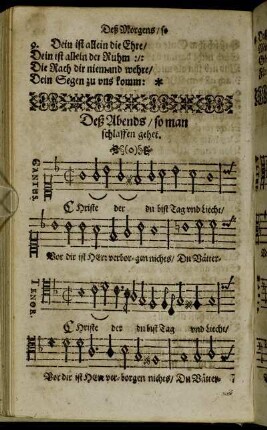 Deß Morgens / so
9. Dein ist allein die Ehre /
Dein ist allein der Ruhm :/:
Die Rach dir niemand wehre /
Dein Segen zu vns komm: *
Deß Abends / so man
schlaffen gehet.
CANTUS.
CHriste der du bist Tag vnd Liecht /
Vor dir ist HErr verbor-gen nichts / Du Vätter-
TENOR.
CHriste der du bist Tag vnd Liecht /
Vor dir ist HErr ver-borgen nichts / Du Vätter-